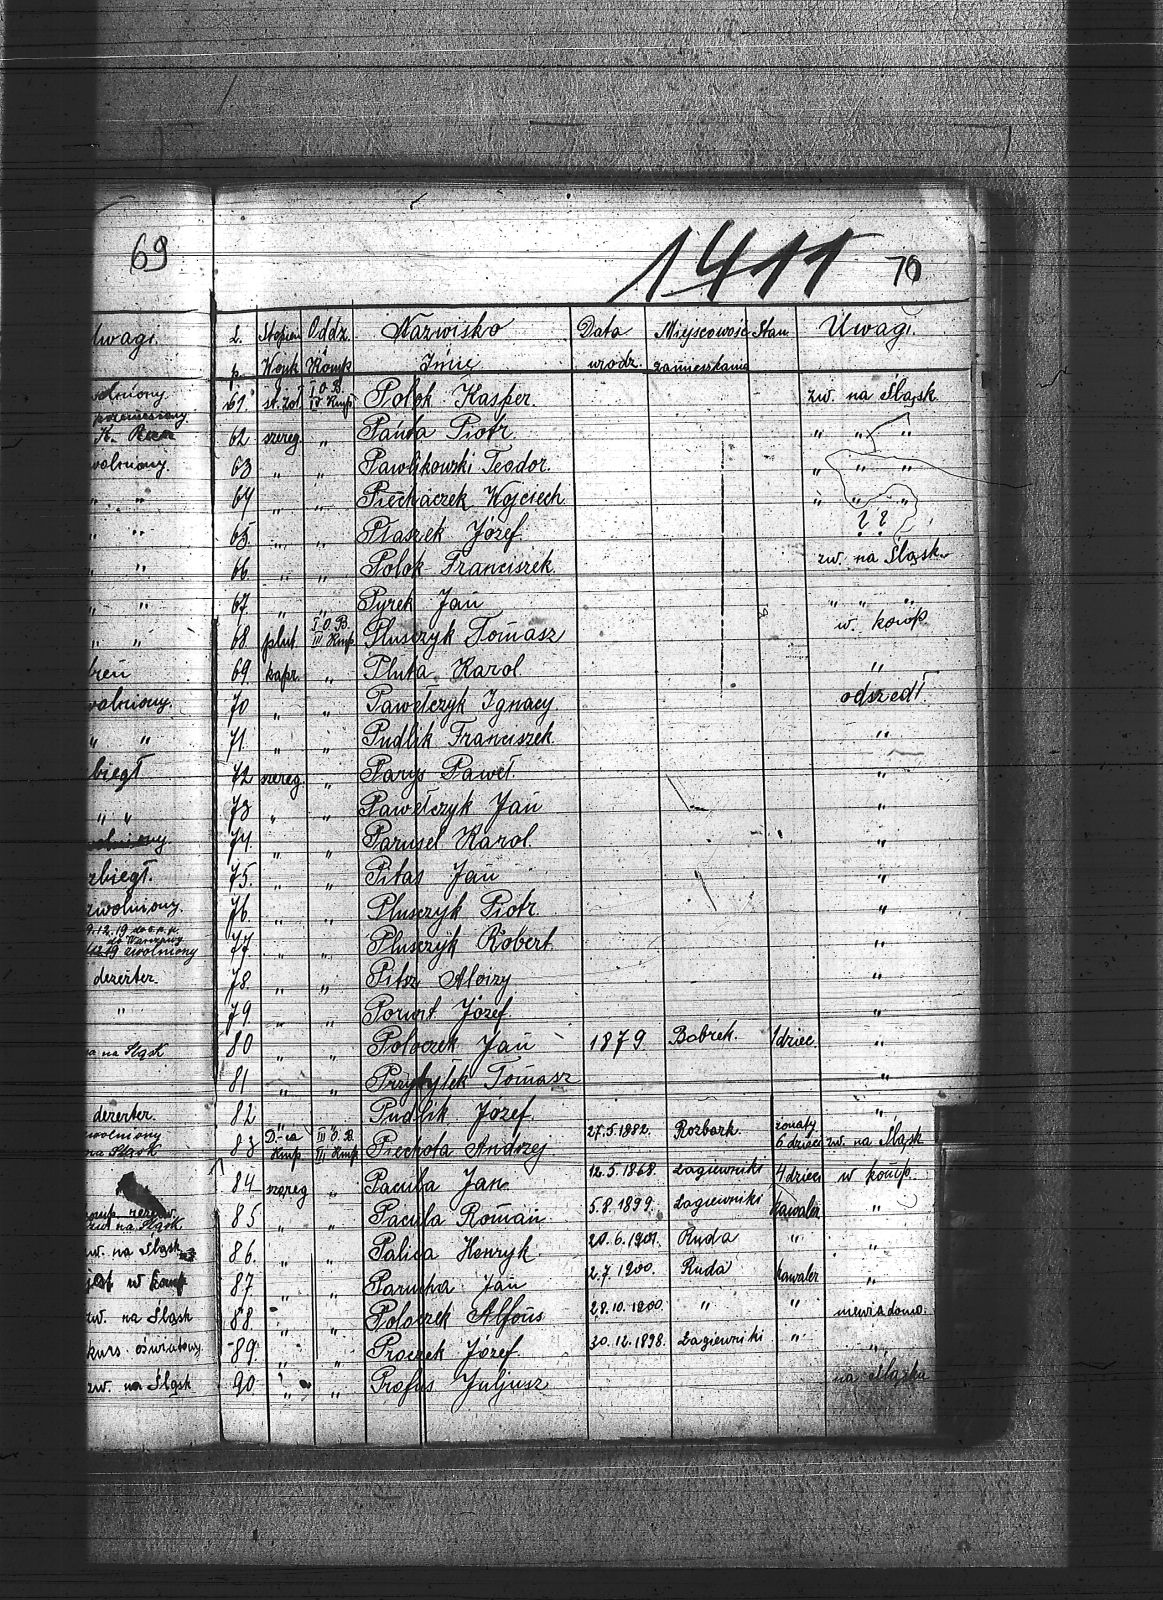 69
1411 70
Uwagi.
wolniony.
" "
" "
" "
" "
" "
wolniony.
" "
zbiegł
" "
zbiegł.
zwolniony.
zwolniony
dezerter.
"
na Śląsk
dezerter.
zwolniony
na Śląsk
na Śląsk
zw. na Śląsk
jest w komp
zw. na Śląsk
kurs oświatowy
zw. na Śląsk
L. Stopień Oddz. Nazwisko Data Miejscowość Stan Uwagi.
p. Wojsk Komp Imię urodz. zamieszkania
61. st. żoł. I O.B. IV Kmp Polok Kasper. zw. na Śląsk
62 szereg " Panta Piotr. " " "
63 " " Pawlikowski Teodor. " " "
64 " " Piechaczek Wojciech " " "
65. " " Ptaszek Józef. ? ?
66. " " Polok Franciszek. zw. na Śląsk
67. " " Pyrek Jan " " "
68. plut I O.B. IV Kmp. Pluszczyk Tomasz w. komp
69. kapr. " Pluta Karol. "
70 " " Pawełczyk Ignacy odszedł.
71. " " Pudlik Franciszek. "
72 szereg. " Parys Paweł. "
73 " " Pawełczyk Jan "
74. " " Parusel Karol. "
75. " " Pitas Jan "
76. " " Pluszczyk Piotr. "
77. " " Pluszczyk Robert. "
78. " " Pitsz Aloizy "
79. " " Porwit Józef. "
80 " " Poloczek Jan 1879. Bobrek. 1 dziec. "
81 " " Przybyłek Tomasz "
82 " " Pudlik Józef. "
83 D-ca Kmp III O.B. III Kmp. Piechota Andrzej 27.5.1882. Rozbark. żonaty 6 dzieci zw. na Śląsk
84 szereg " Pacuła Jan. 12.5.1868. Łagiewniki 4 dzieci w komp.
85 " " Pacuła Roman. 5.8.1899. Łagiewniki Kawaler "
86. " " Palica Henryk. 20.6.1901. Ruda " "
87. " " Parucha Jan 2.7.1900. Ruda Kawaler "
88. " " Poloczek Alfons 28.10.1900. " " niewiadomo.
89. " " Proczek Józef. 30.12.1898. Łagiewniki " "
90. " " Profus Juljusz na Śląska